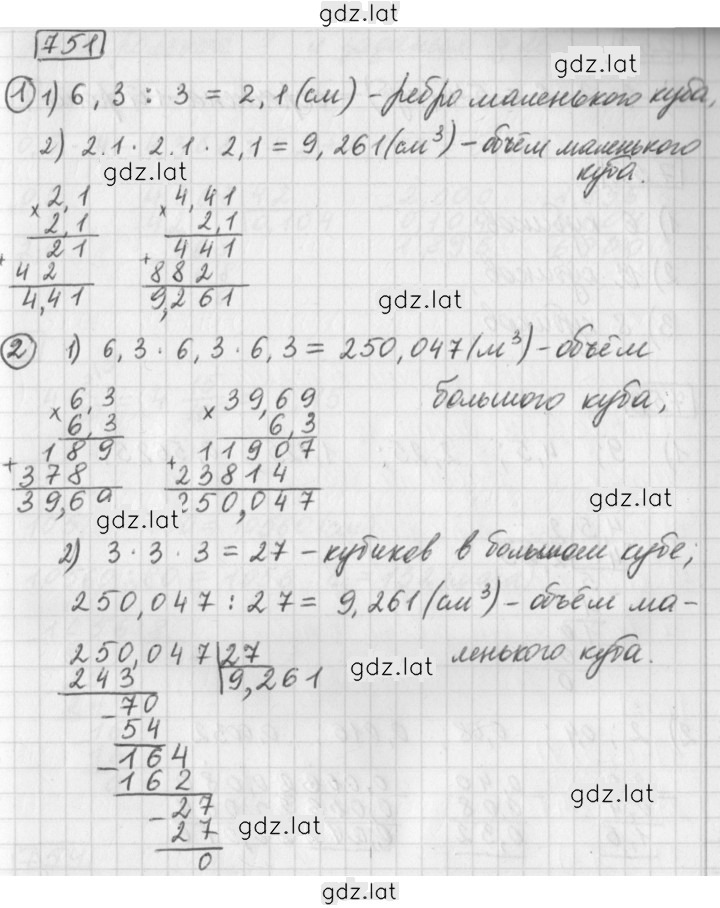 gdz.lat
751
gdz.lat
① 1) 6,3 : 3 = 2,1 (см) – ребро маленького куба,
2) 2.1 · 2.1 · 2,1 = 9,261 (см³) – объём маленького
куба.
gdz.lat
× 2,1
2,1
21
+ 42
4,41
× 4,41
2,1
441
+ 882
9,261
gdz.lat
② 1) 6,3 · 6,3 · 6,3 = 250,047 (м³) – объём
большого куба;
× 6,3
6,3
189
+ 378
39,69
× 39,69
6,3
11907
+ 23814
250,047
gdz.lat
gdz.lat
2) 3 · 3 · 3 = 27 – кубиков в большом кубе;
250,047 : 27 = 9,261 (см³) – объём ма-
ленького куба.
gdz.lat
250,047 | 27
243 | 9,261
– 70
54
– 164
162
– 27
27
0
gdz.lat
gdz.lat
gdz.lat